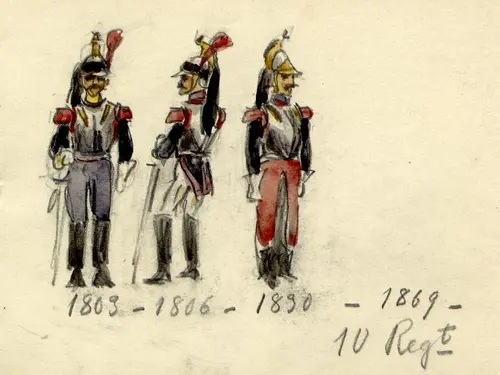 1803 - 1806 - 1830 - 1869 -
10 Regt